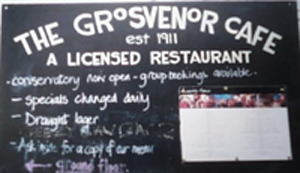 THE GROSVENOR CAFE
est 1911
A LICENSED RESTAURANT
- conservatory now open - group bookings available -
- specials changed daily
- Draught lager
- Ask inside for a copy of our menu
ground floor